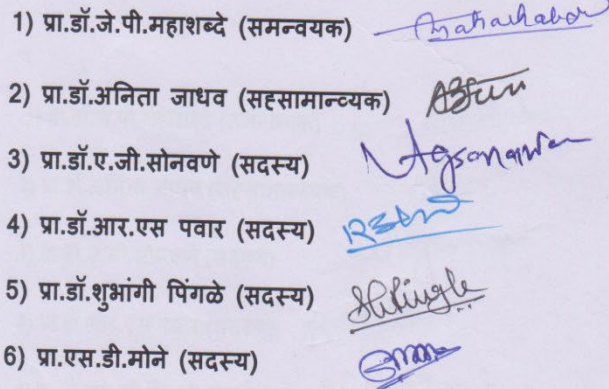 1) प्रा.डॉ.जे.पी.महाशब्दे (समन्वयक)
2) प्रा.डॉ.अनिता जाधव (सहसामान्व्यक)
3) प्रा.डॉ.ए.जी.सोनवणे (सदस्य) Agsonawane
4) प्रा.डॉ.आर.एस पवार (सदस्य)
5) प्रा.डॉ.शुभांगी पिंगळे (सदस्य) SHPingle
6) प्रा.एस.डी.मोने (सदस्य)